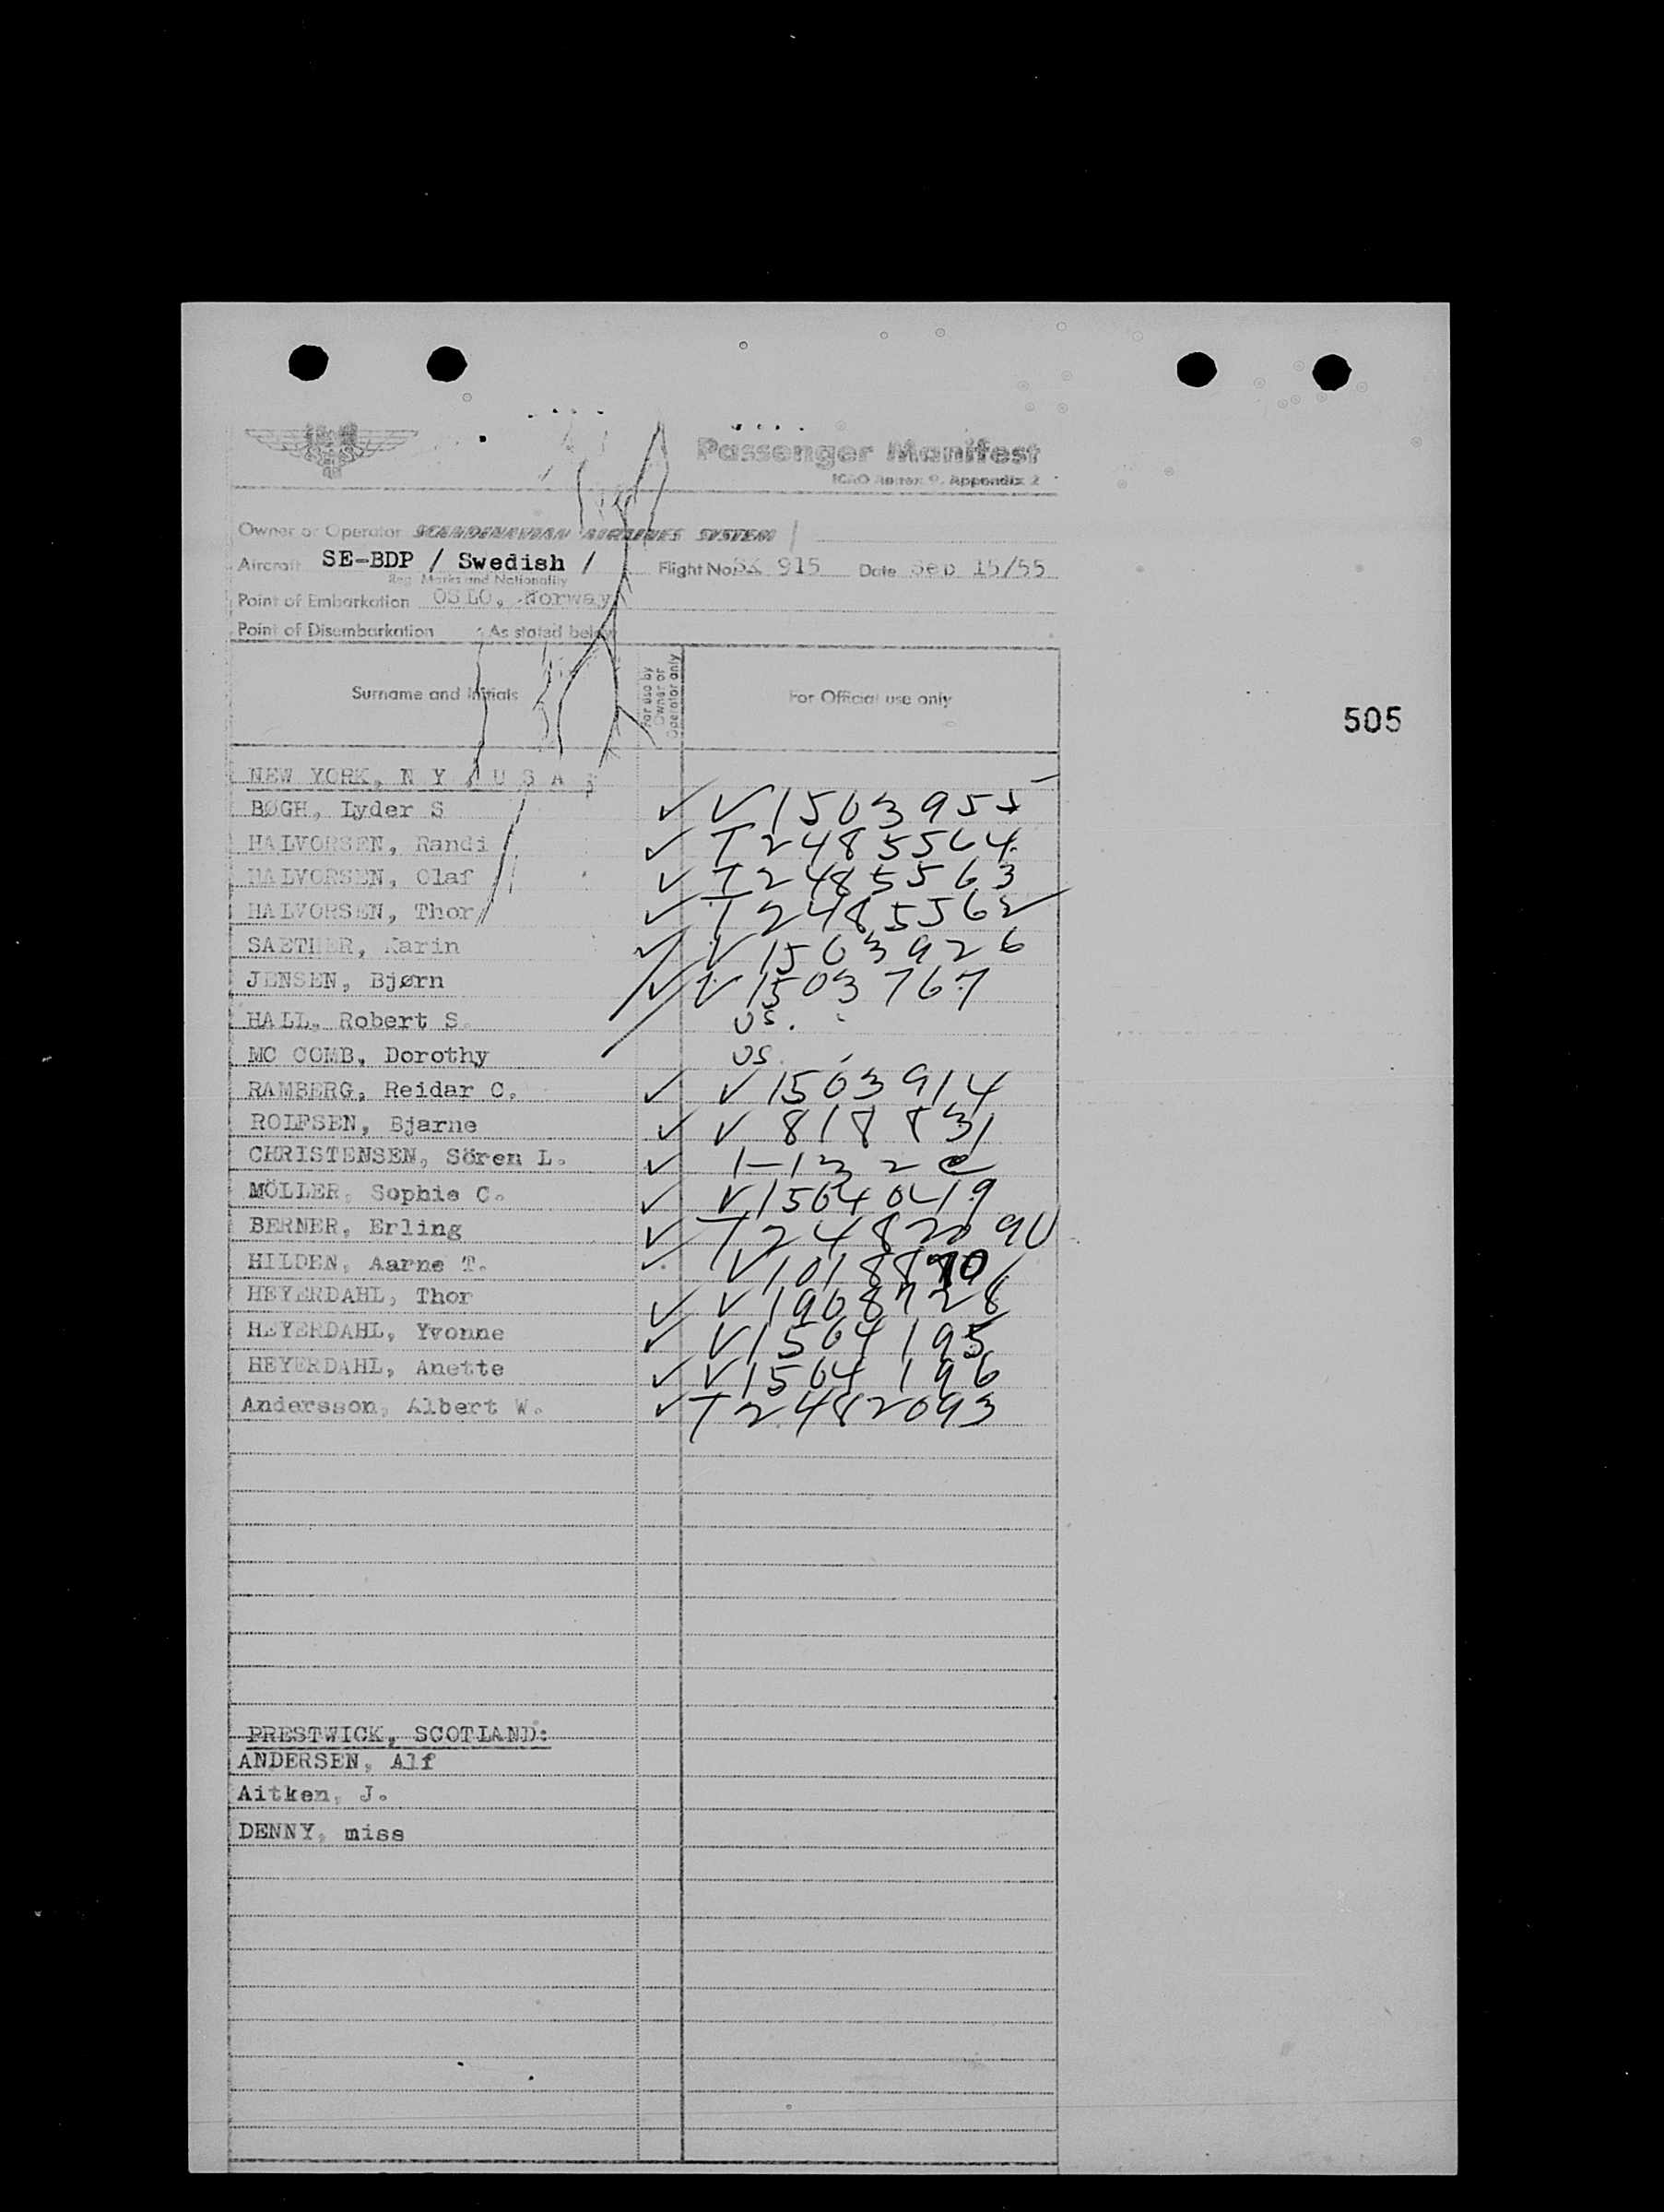 Passenger Manifest
ICAO Annex 9, Appendix 2
Owner or Operator SCANDINAVIAN AIRLINES SYSTEM
Aircraft SE-BDP / Swedish / Flight No. SK 915 Date Sep 15/55
Reg. Marks and Nationality
Point of Embarkation OSLO, Norway
Point of Disembarkation As stated below
Surname and Initials For use by Owner or Operator only For Official use only
505
NEW YORK, N Y , U S A ;
BØGH, Lyder S ✓ V1503955
HALVORSEN, Randi ✓ T2485564
HALVORSEN, Olaf ✓ T2485563
HALVORSEN, Thor ✓ T2485562
SAETHER, Karin ✓ V1503926
JENSEN, Bjørn ✓ V1503767
HALL, Robert S. US.
MC COMB, Dorothy US.
RAMBERG, Reidar C. ✓ V1503914
ROLFSEN, Bjarne ✓ V818831
CHRISTENSEN, Sören L. ✓
MÖLLER, Sophie C. ✓
BERNER, Erling ✓
HILDEN, Aarne T. ✓
HEYERDAHL, Thor ✓ V1908728
HEYERDAHL, Yvonne ✓ V1504195
HEYERDAHL, Anette ✓ V1504196
Andersson, Albert W. ✓ T2482093
PRESTWICK, SCOTLAND:
ANDERSEN, Alf
Aitken, J.
DENNY, miss